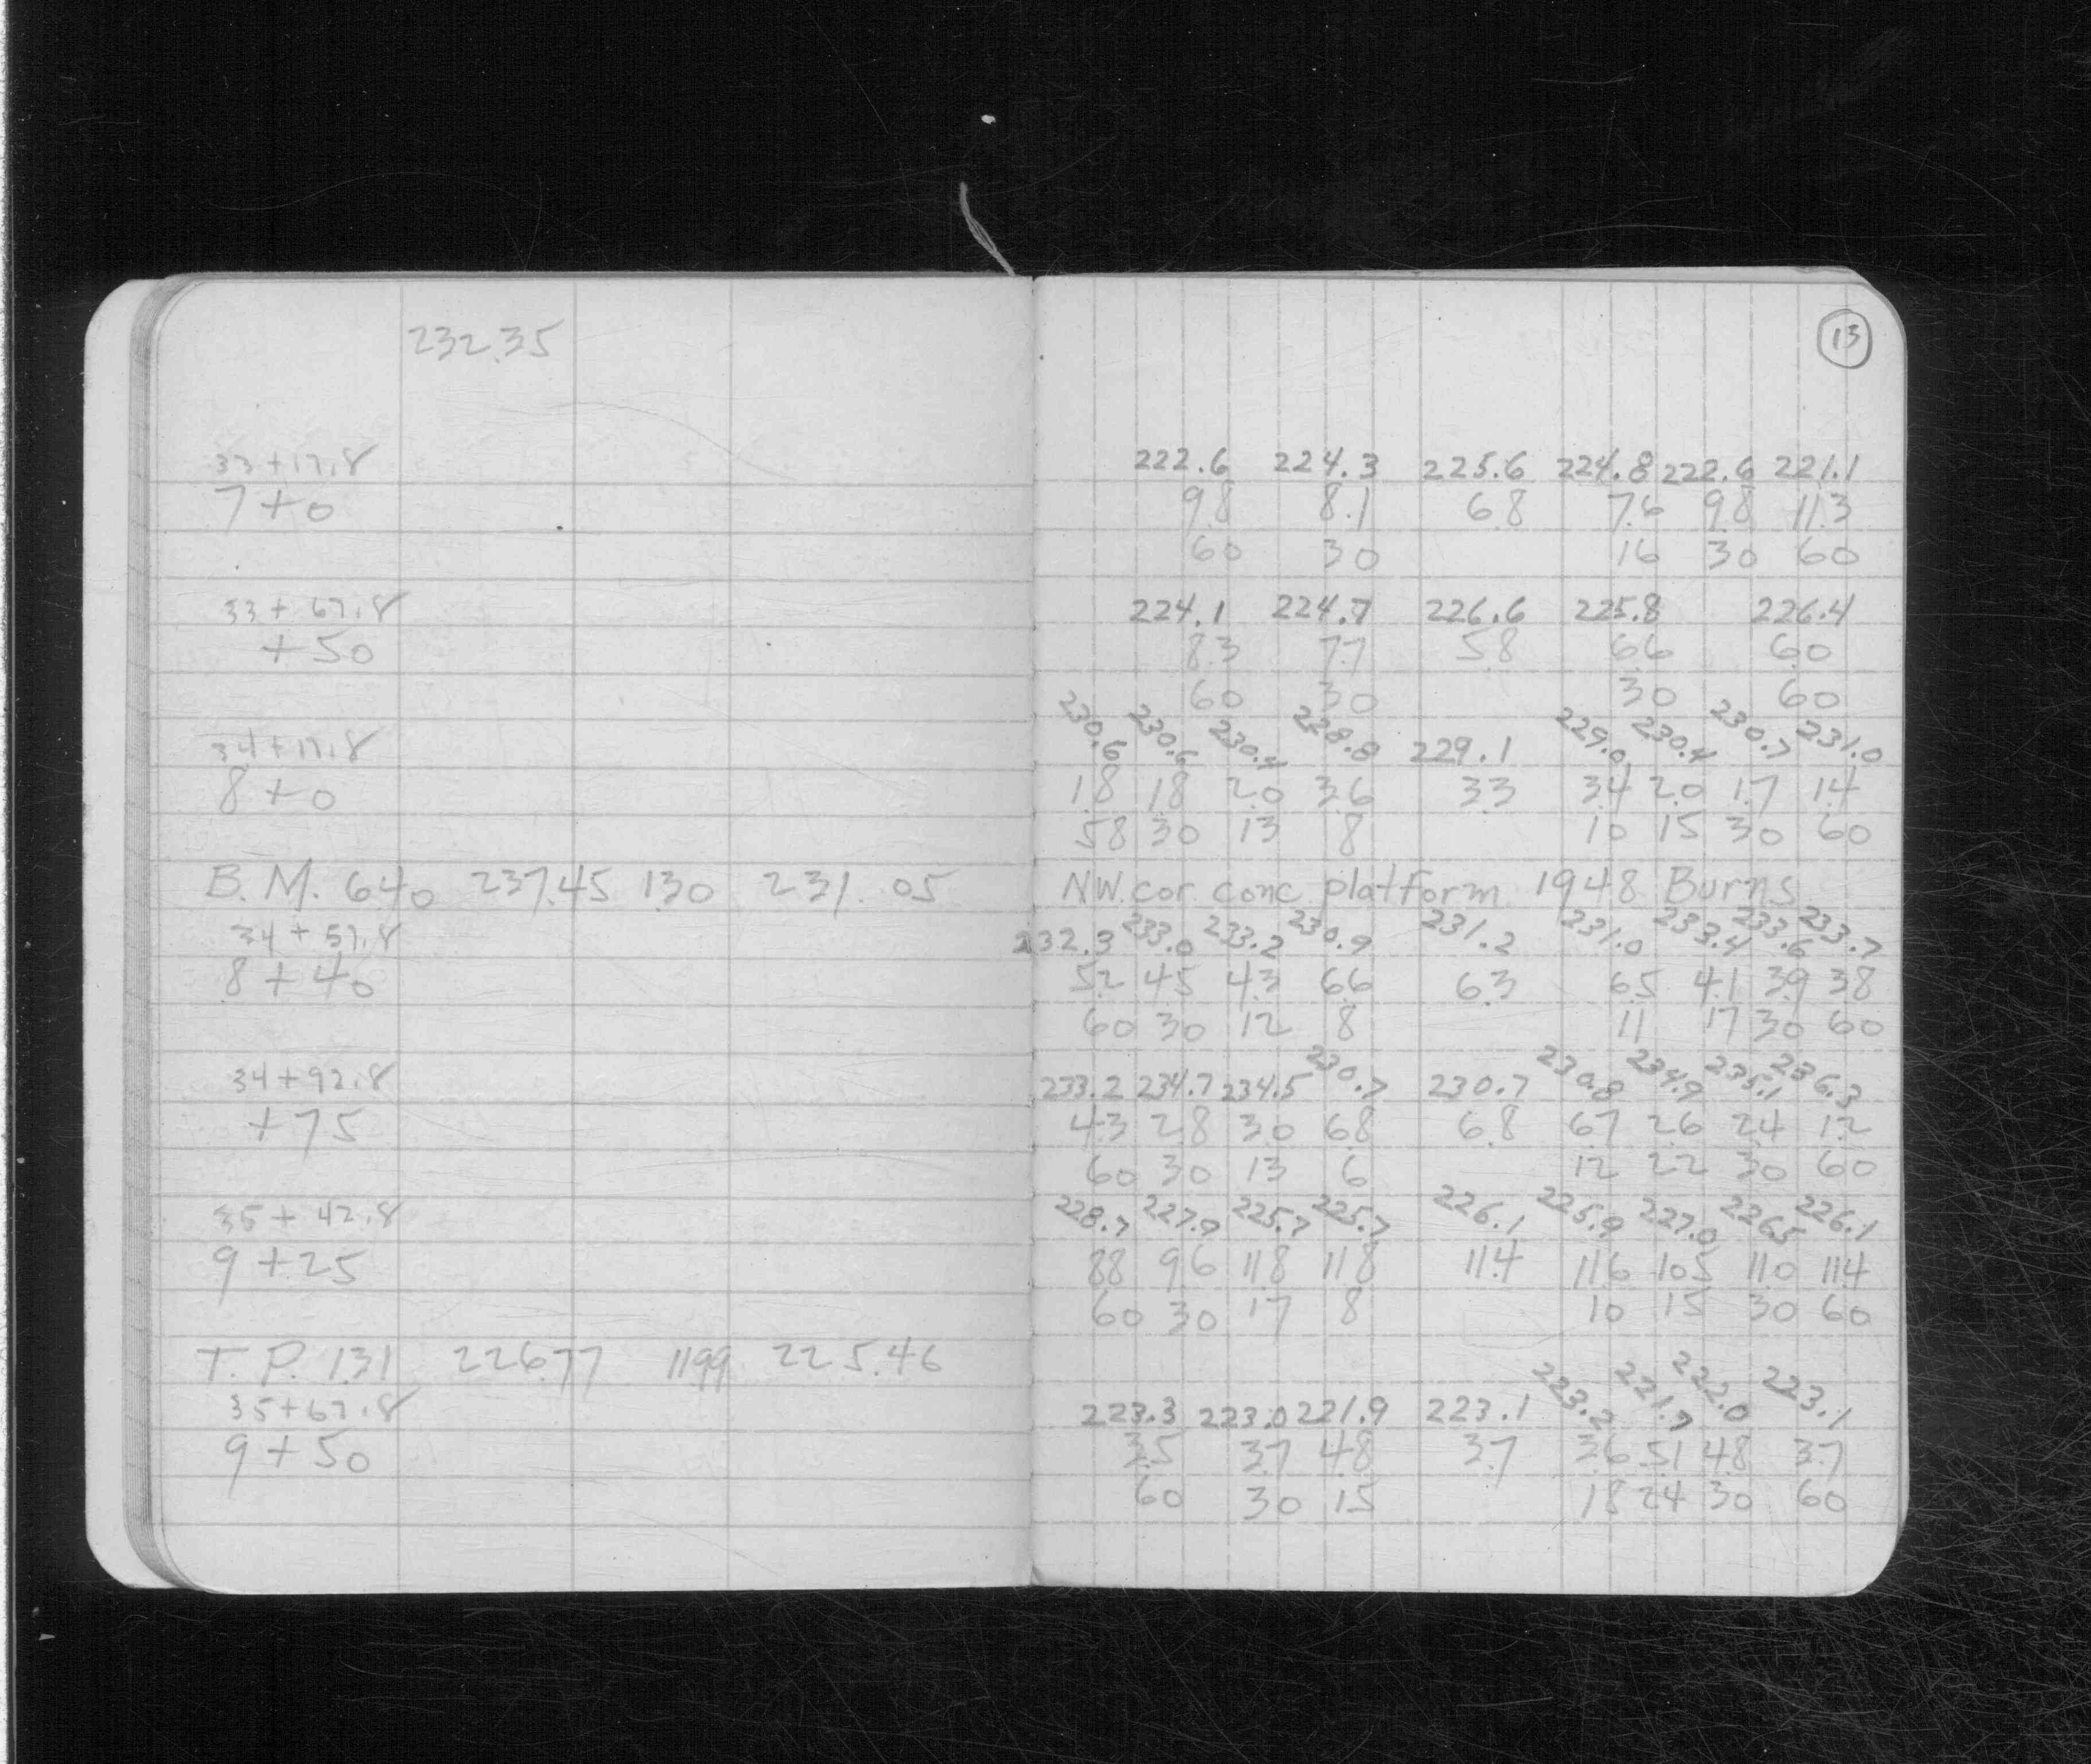 232.35
13
33+17.8 222.6 224.3 225.6 224.8 222.6 221.1
7+0 9.8 8.1 6.8 7.6 9.8 11.3
60 30 16 30 60
33+67.8 224.1 224.7 226.6 225.8 226.4
+50 8.3 7.7 5.8 6.6 6.0
60 30 30 60
34+17.8 230.6 230.6 230.4 228.8 229.1 229.0 230.4 230.7 231.0
8+0 1.8 1.8 2.0 3.6 3.3 3.4 2.0 1.7 1.4
58 30 13 8 10 15 30 60
B.M. 6.40 237.45 1.30 231.05 NW. cor. conc platform 1948 Burns
34+57.8 232.3 233.0 233.2 230.9 231.2 231.0 233.4 233.6 233.7
8+40 5.2 4.5 4.3 6.6 6.3 6.5 4.1 3.9 3.8
60 30 12 8 11 17 30 60
34+92.8 233.2 234.7 234.5 230.7 230.7 230.8 234.9 235.1 236.3
+75 4.3 2.8 3.0 6.8 6.8 6.7 2.6 2.4 1.2
60 30 13 6 12 22 30 60
35+42.8 228.7 227.9 225.7 225.7 226.1 225.9 227.0 226.5 226.1
9+25 8.8 9.6 11.8 11.8 11.4 11.6 10.5 11.0 11.4
60 30 17 8 10 15 30 60
T.P. 1.31 226.77 11.99 225.46
35+67.8 223.3 223.0 221.9 223.1 223.2 221.7 222.0 223.1
9+50 3.5 3.7 4.8 3.7 3.6 5.1 4.8 3.7
60 30 15 18 24 30 60